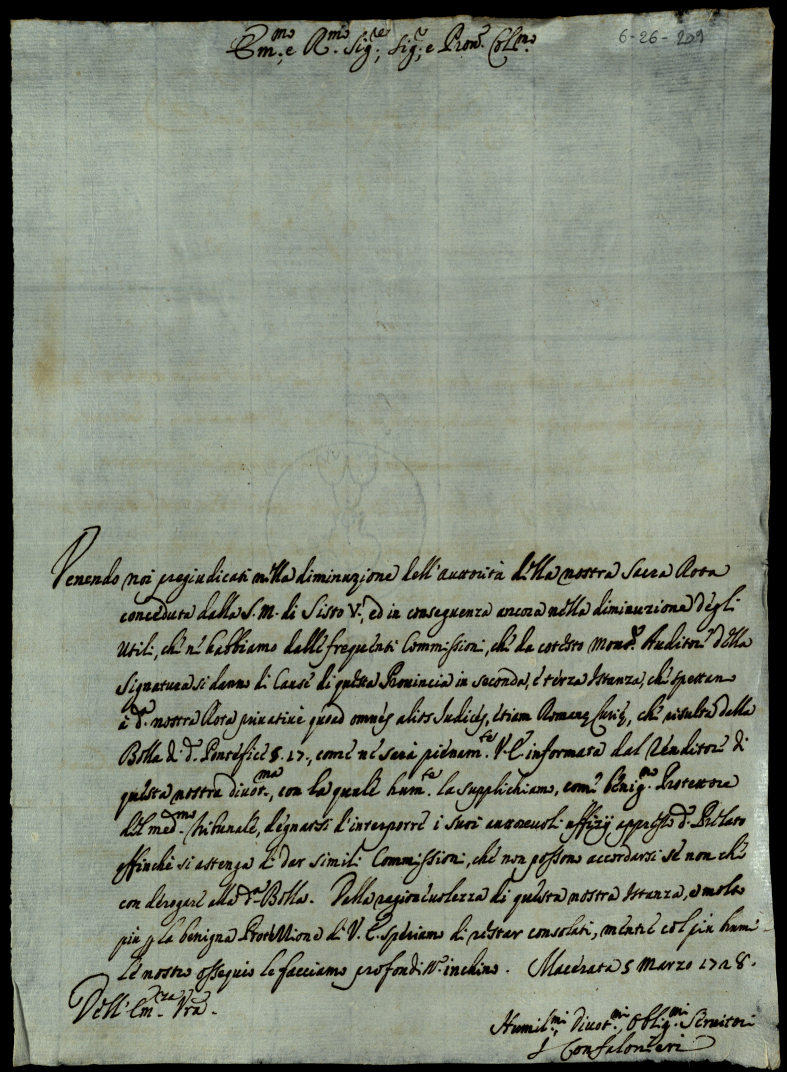 Em.mo e R.mo Sig.re, Sig.r, e Pron.e Col.mo
6-26-209
Venendo noi pregiudicati nella diminuzione dell'autorità della nostra Sacra Rota
conceduta dalla S.M. di Sisto V., ed in conseguenza ancora nella diminuzione degli
Utili, che n'habbiamo dalle frequenti Commissioni, che da cotesto Mons.r Auditore della
Signatura si danno di Cause di questa Provincia in seconda, e terza Istanza, che spettano
a d.a nostra Rota privative quoad omnes alios Judices, etiam Romanę Curię, che risulta dalla
Bolla di d. Pontefice §. 17., come ne sarà pienam.te V.E. informata dal Renditore di
questa nostra divot.ma, con la quale hum.te la supplichiamo, come benig.mo Protettore
del med.mo Tribunale, degnarsi d'interporre i suoi autorevoli uffizij appresso d. Prelato
affinche si astenga di dar simili Commissioni, che non possono accordarsi se non che
con derogare alla d.a Bolla. Dalla ragionevolezza di questa nostra Istanza, e molto
piu p la benigna Protettione di V.E. speriamo di restar consolati, mentre col piu humi-
le nostro ossequio le facciamo profondis.o inchino. Macerata 5 Marzo 1728.
Dell'Em.za Vra.
Humil.mi, Divot.mi, Oblig.mi Servitori
I Confalonieri